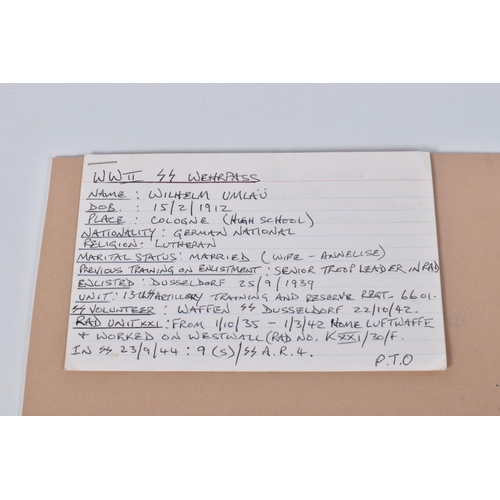 WWII SS WEHRPASS
NAME : WILHELM UMLAÜ
DOB. : 15/2/1912
PLACE : COLOGNE (HIGH SCHOOL)
NATIONALITY : GERMAN NATIONAL
RELIGION : LUTHERAN
MARITAL STATUS : MARRIED (WIFE - ANNELISE)
PREVIOUS TRAINING ON ENLISTMENT : SENIOR TROOP LEADER IN RAD
ENLISTED : DUSSELDORF 25/9/1939
UNIT : 13th SS ARTILLERY TRAINING AND RESERVE REGT. 6601.
SS VOLUNTEER : WAFFEN SS DUSSELDORF 22/10/42.
RAD UNIT XXI : FROM 1/10/35 - 1/3/42 HOME LUFTWAFFE
+ WORKED ON WESTWALL (RAD NO. KXXI/30/F.
IN SS 23/9/44 : 9 (S)/SS A.R.4.
P.T.O